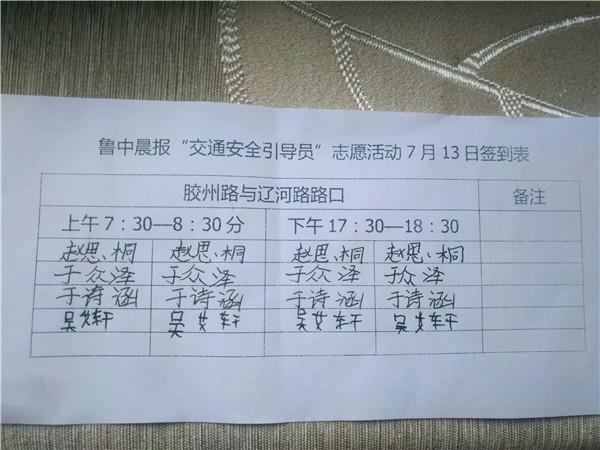 鲁中晨报“交通安全引导员”志愿活动7月13日签到表
胶州路与辽河路路口 备注
上午7：30—8：30分 下午17：30—18：30
赵思桐 赵思桐 赵思桐 赵思桐
于众泽 于众泽 于众泽 于众泽
于诗涵 于诗涵 于诗涵 于诗涵
吴艾轩 吴艾轩 吴艾轩 吴艾轩